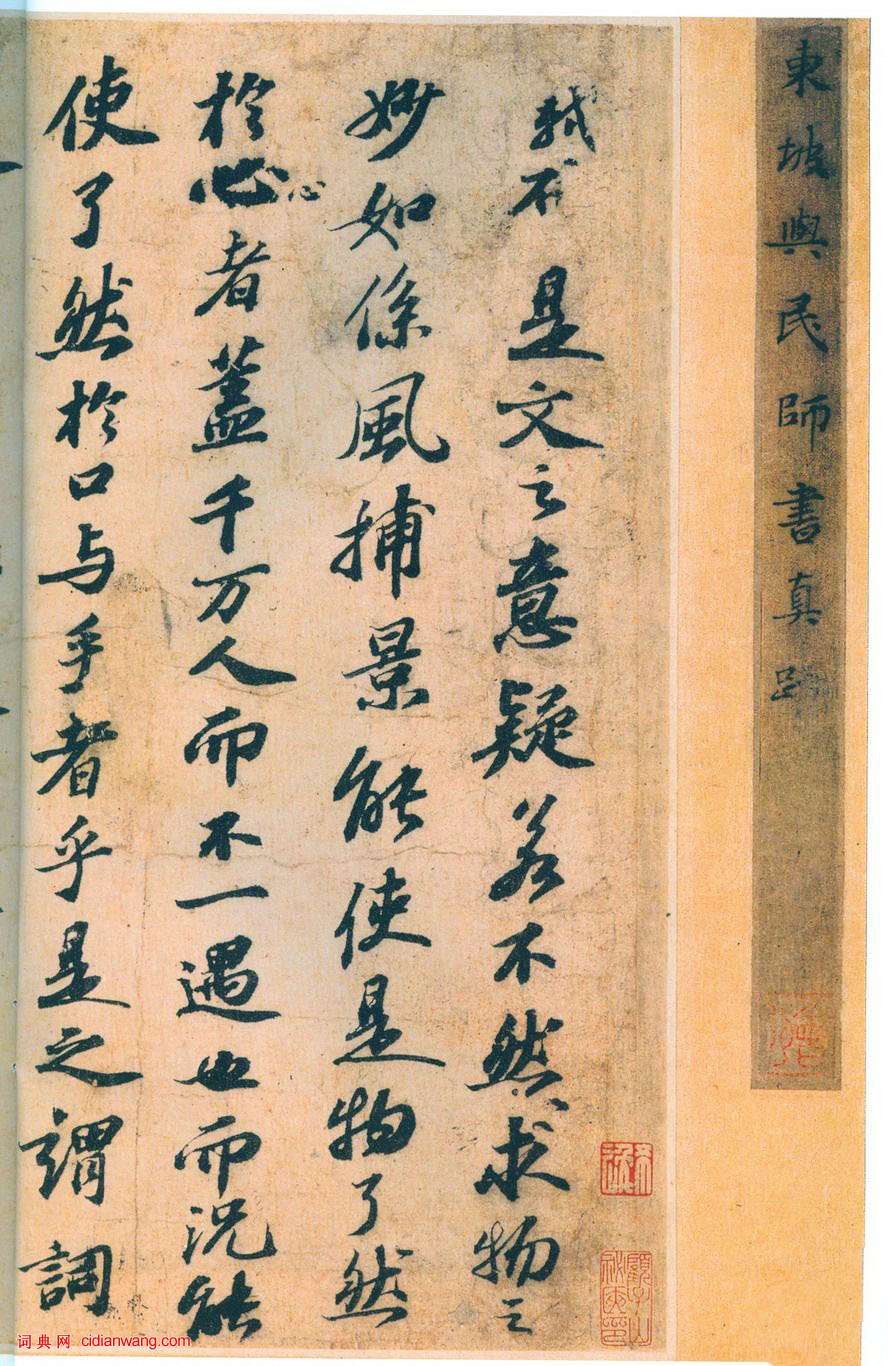 東坡與民師書真跡
軾不是文之意疑若不然求物之
妙如係風捕景能使是物了然
於心心者蓋千万人而不一遇也而況能
使了然於口与手者乎是之謂詞
词典网 cidianwang.com